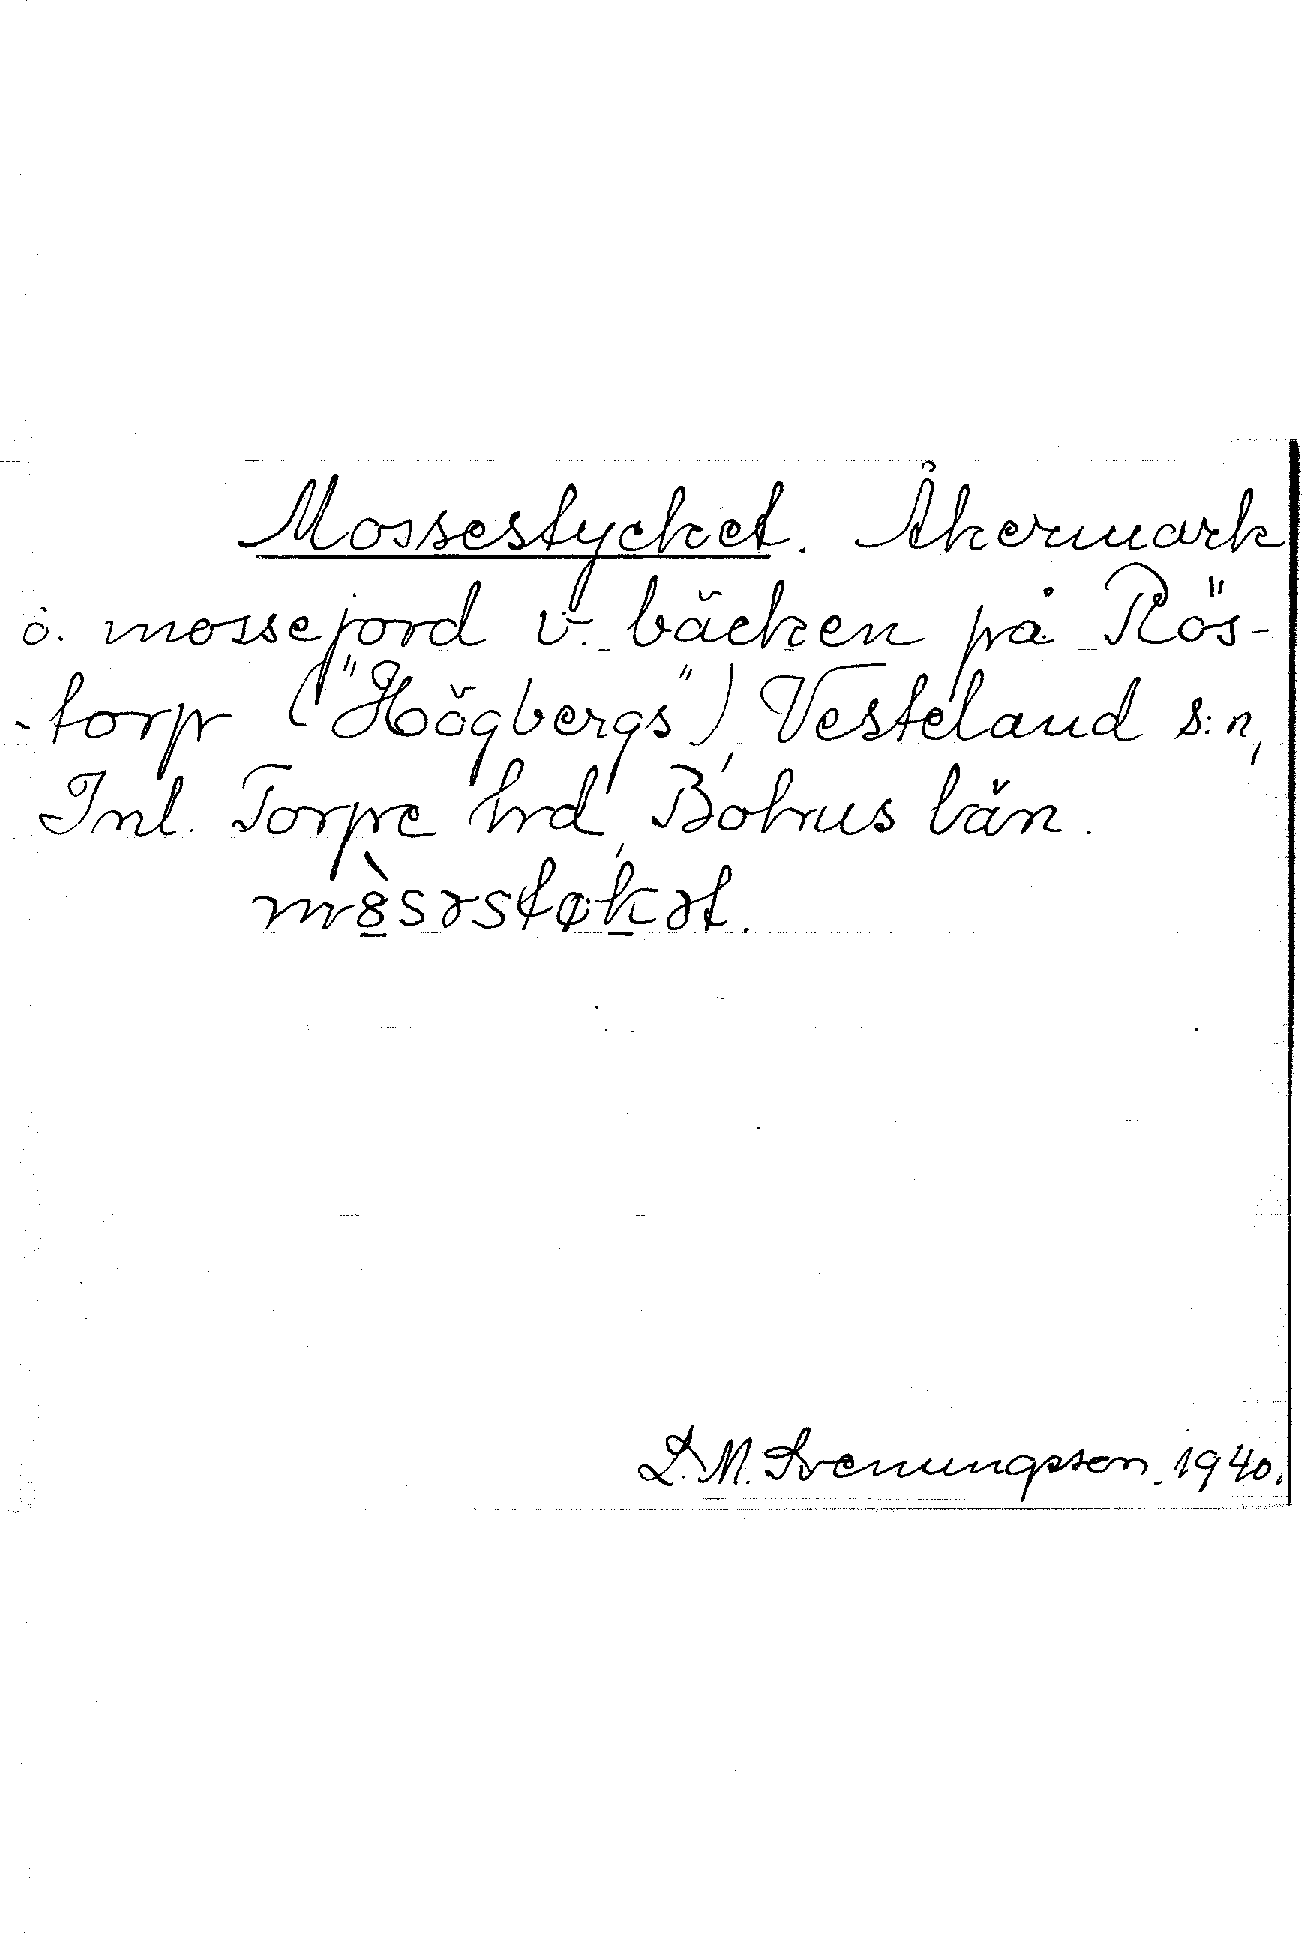 Mossestycket. Åkermark
å. mossejord v. bäcken på Rös-
-torp ("Högbergs"), Vesteland s:n,
Inl. Torpe hrd, Bohus län.
mò̱səstøḵət.
S. M. Svenungsson. 1940.